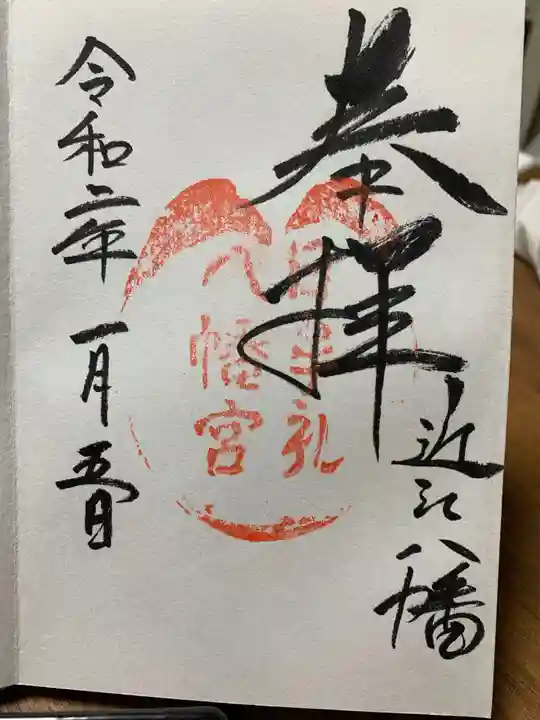 奉拝
近江八幡
日牟礼
八幡宮
令和二年 一月五日